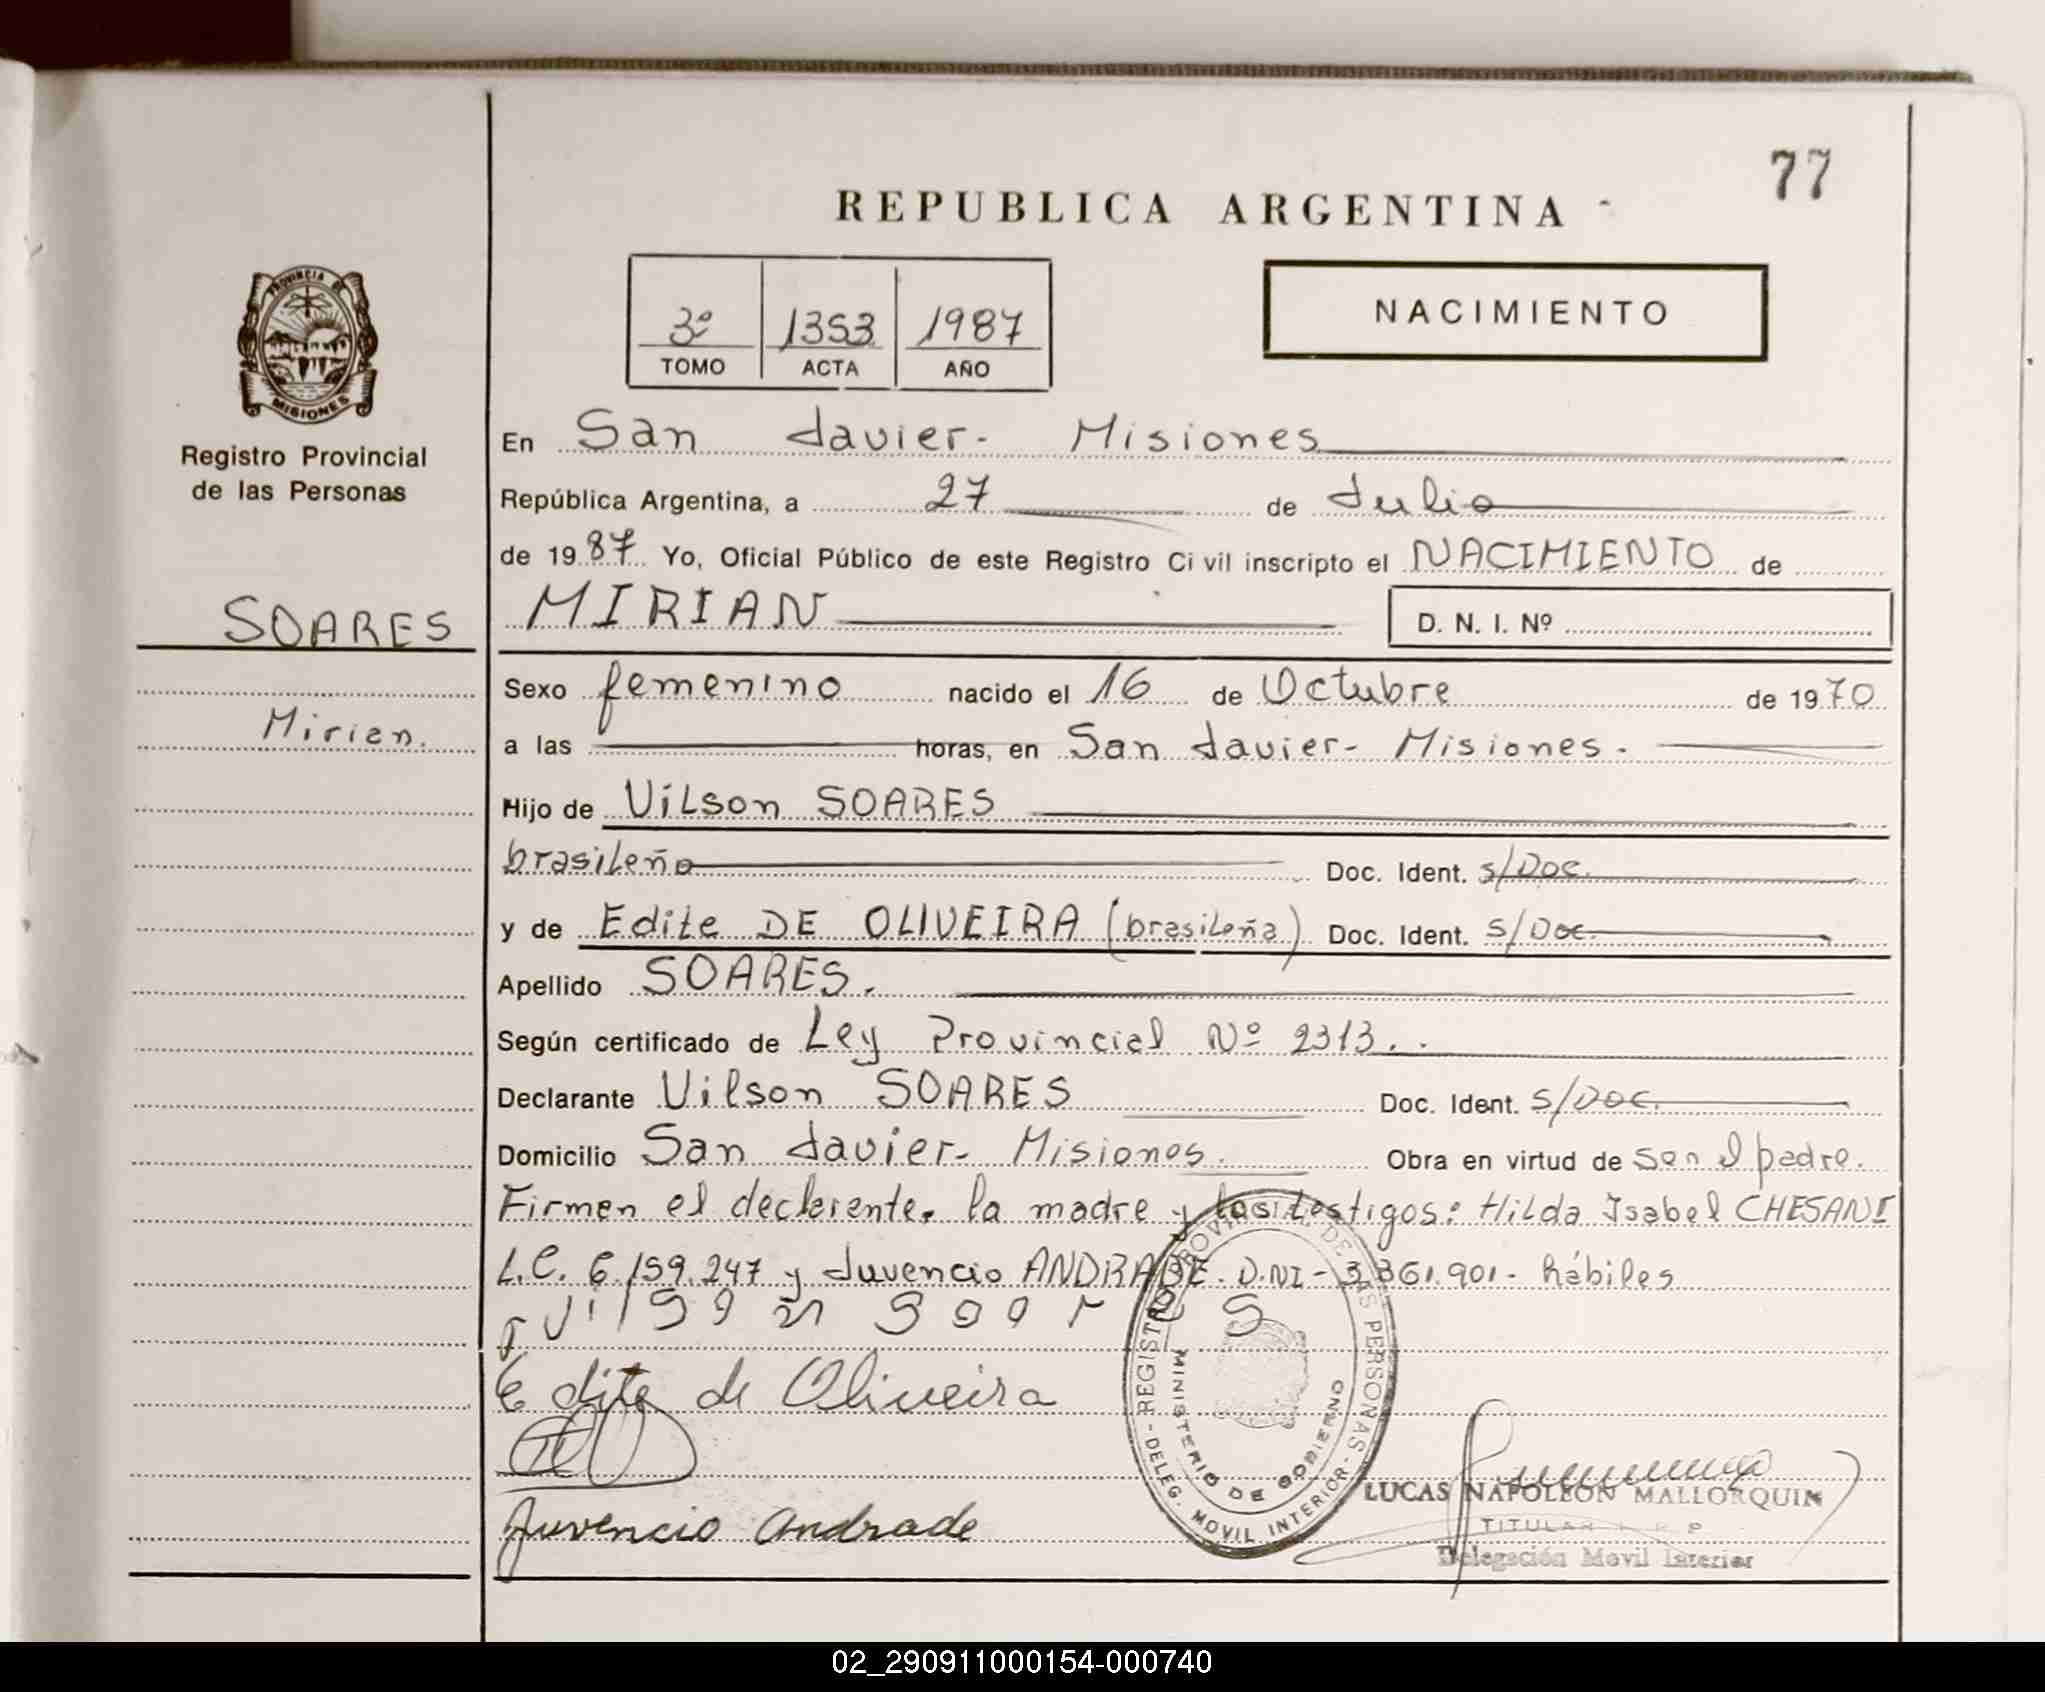 77
REPUBLICA ARGENTINA
PROVINCIA DE
MISIONES
3º 1353 1987
TOMO ACTA AÑO
NACIMIENTO
Registro Provincial
de las Personas
En San Javier- Misiones
República Argentina, a 27 de Julio
de 1987. Yo, Oficial Público de este Registro Ci vil inscripto el NACIMIENTO de
SOARES
MIRIAN
D. N. I. Nº
Sexo femenino nacido el 16 de Octubre de 1970
Mirian.
a las horas, en San Javier- Misiones.
Hijo de Vilson SOARES
brasileño Doc. Ident. s/Doc.
y de Edite DE OLIVEIRA (brasileña) Doc. Ident. s/Doc.
Apellido SOARES.
Según certificado de Ley Provincial Nº 2313..
Declarante Vilson SOARES Doc. Ident. s/Doc.
Domicilio San Javier- Misiones. Obra en virtud de ser el padre.
Firman el declarante, la madre y los testigos: Hilda Isabel CHESANI
L.C. 6.159.247 y Juvencio ANDRADE. D.NI- 3.361.901- hábiles
Edite de Oliveira
Juvencio Andrade
REGISTRO PROVINCIAL DE LAS PERSONAS
DELEG. MOVIL INTERIOR
MINISTERIO DE GOBIERNO
LUCAS NAPOLEON MALLORQUIN
TITULAR
Delegación Movil Interior
02_290911000154-000740